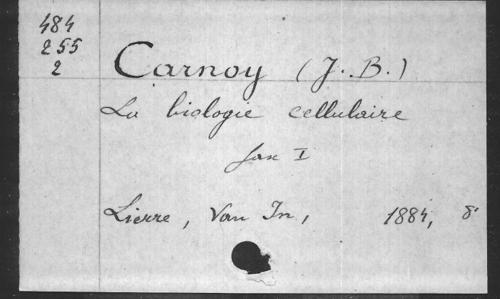 484
255
2
Carnoy (J. B.)
La biologie cellulaire
fasc I
Lierre, Van In, 1884, 8°